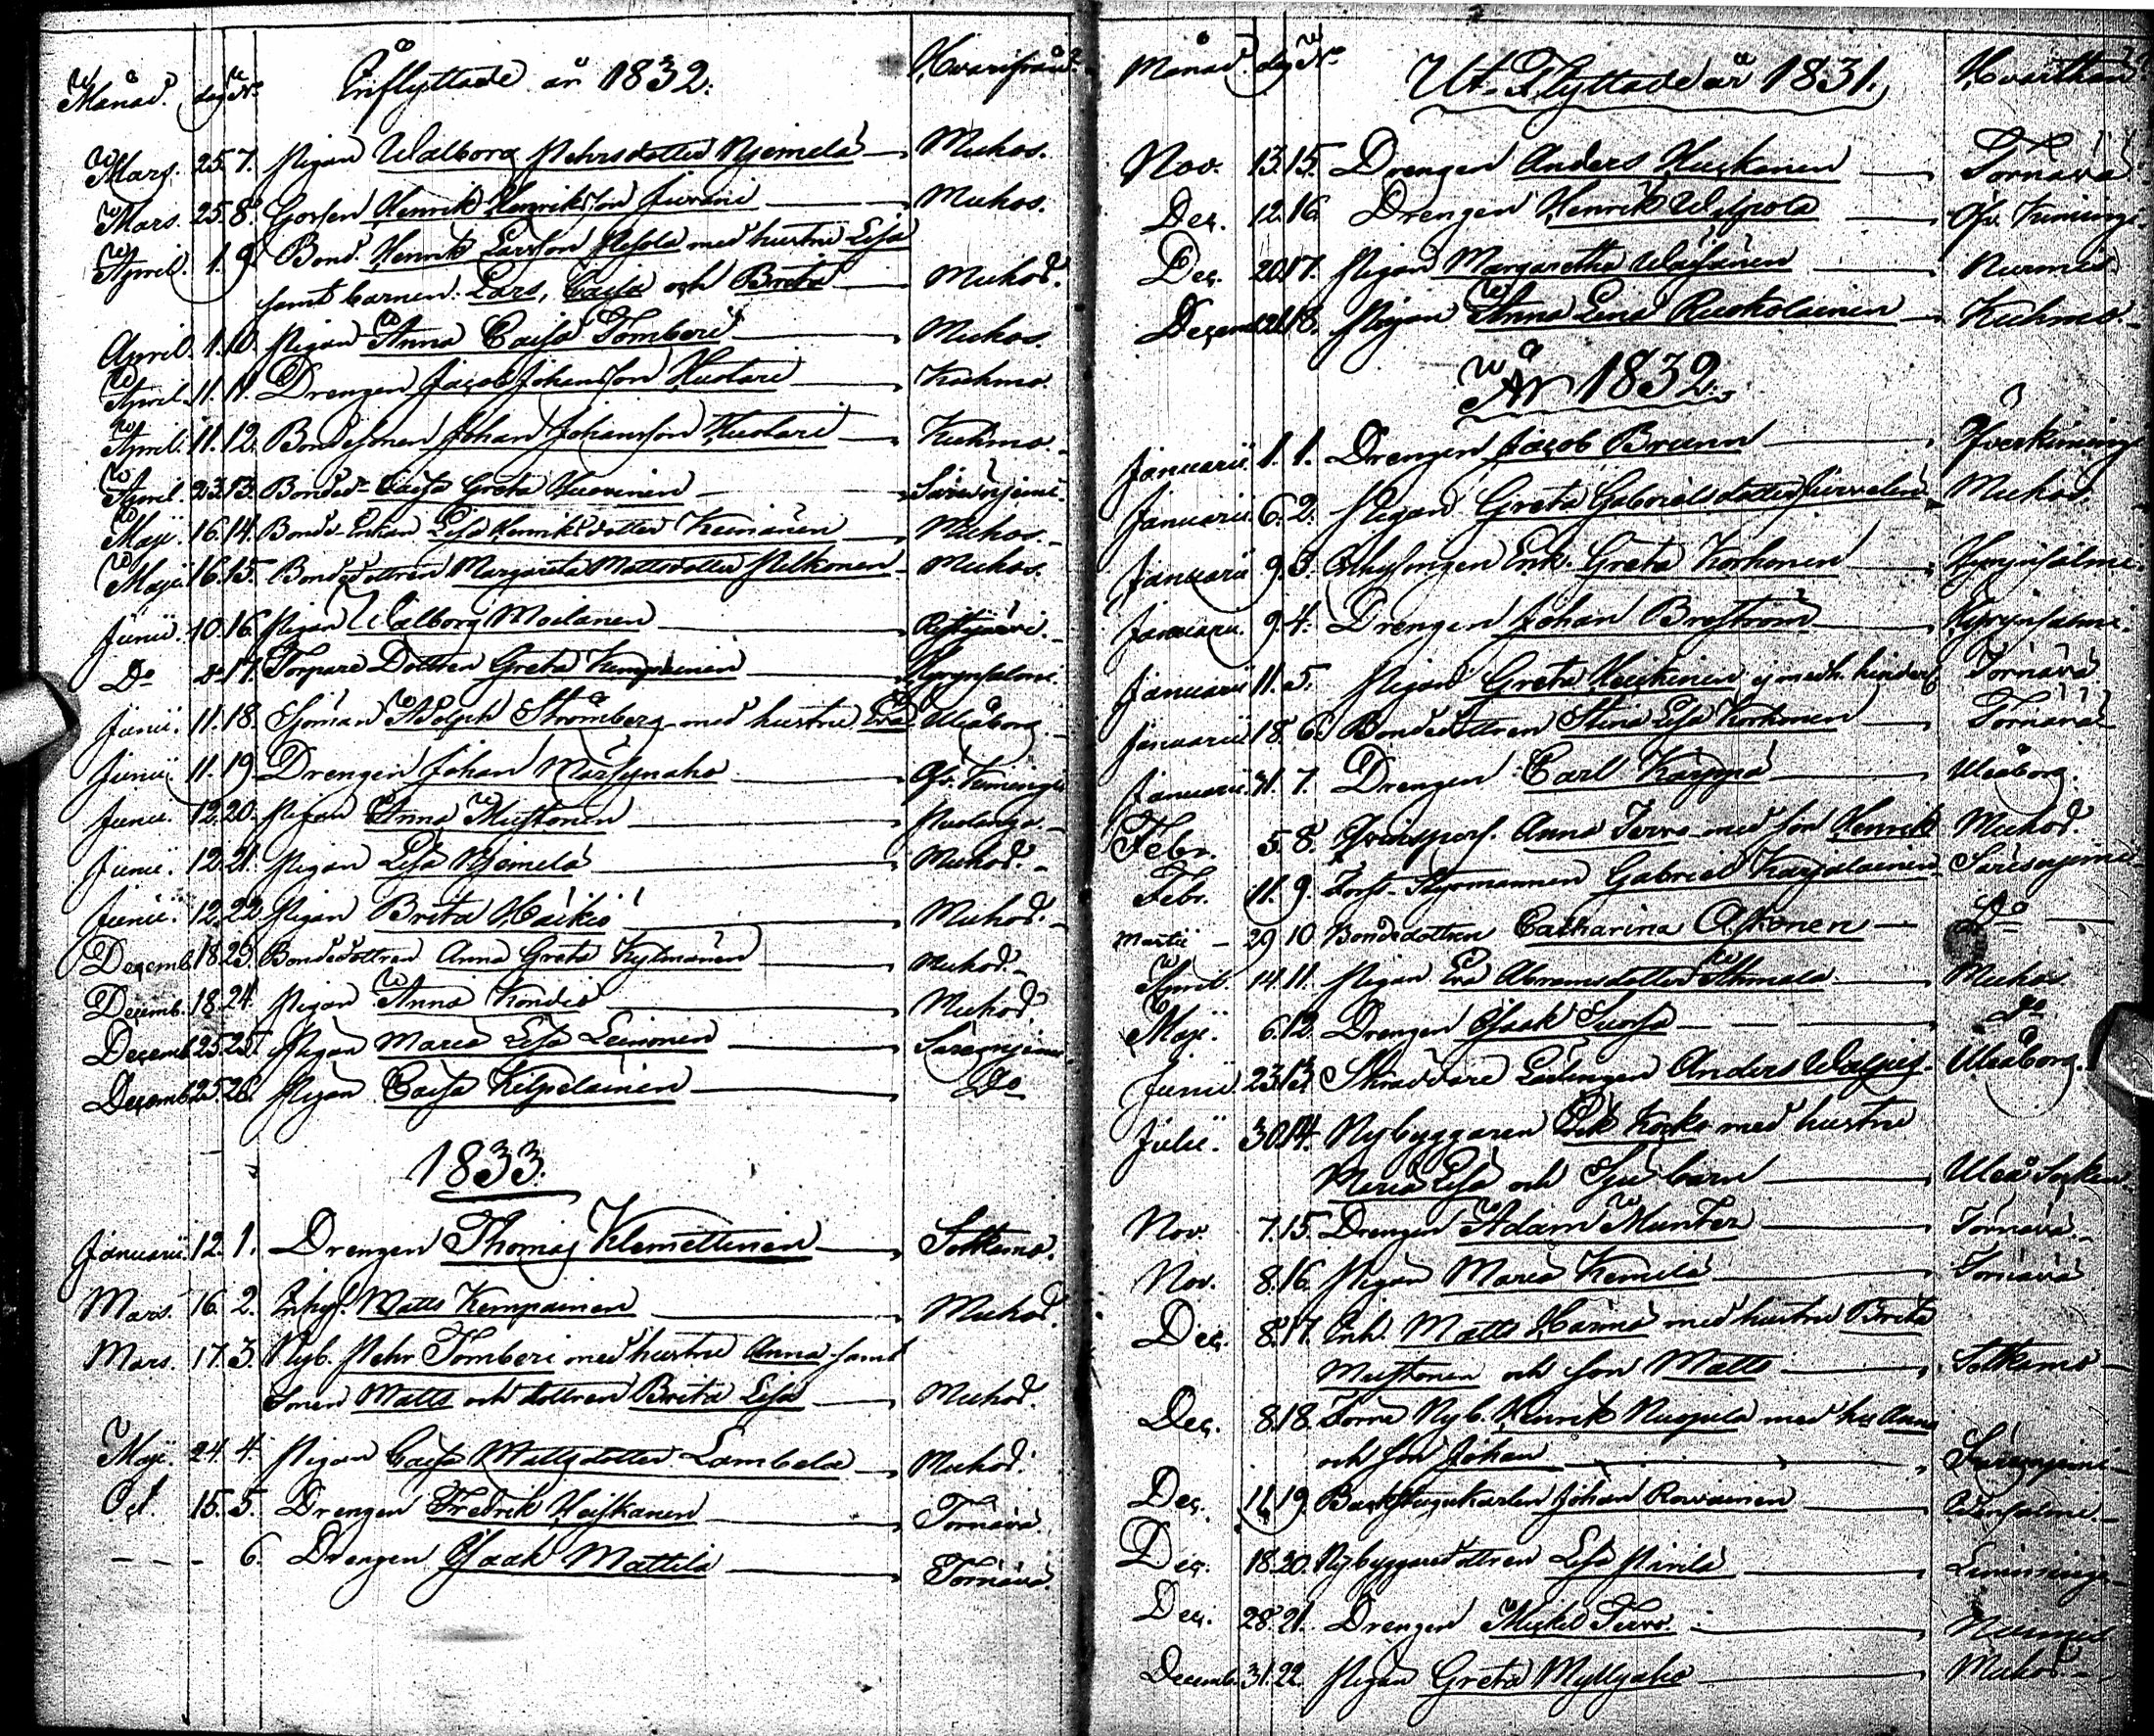 Månad. dag No Inflyttade år 1832. Hvarifrån?
Mars. 25. 7. Pigan Walborg Pehrsdotter Njemelä Muhos.
Mars. 25. 8. Gossen Henrik Henriksson Juvani Muhos.
April. 1. 9. Bond. Henrik Larsson Pesola med hustru Lisa
samt barnen: Lars, Caisa och Brita Muhos.
April. 1. 10. Pigan Anna Caisa Tomberi Muhos.
April. 11. 11. Drengen Jacob Johansson Huotari Kuhmo.
April. 11. 12. Bondesonen Johan Johansson Huotari Kuhmo.
April. 23. 13. Bonded. Caisa Greta Huovinen Säresnjemi.
Maji. 16. 14. Bonde Enkan Lisa Henriksdotter Keinänen Muhos.
Maji. 16. 15. Bondedottren Margareta Mattsdotter Pelkonen Muhos.
Junii. 10. 16. Pigan Walborg Moilanen Ristijärvi.
Do do 17. Torpare Dottren Greta Kemppainen Hyrynsalmi.
Junii. 11. 18. Sjöman Adolph Strömberg med hustru Eva Uleåborg.
Junii. 11. 19. Drengen Johan Märsynaho Öf. Kiminge
Junii. 12. 20. Pigan Anna Mustonen Puolango.
Junii. 12. 21. Pigan Lisa Njemelä Muhos.
Junii. 12. 22. Pigan Brita Häikiö Muhos.
Decemb. 18. 23. Bondedottren Anna Greta Kylmänen Muhos.
Decemb. 18. 24. Pigan Anna Kondio Muhos.
Decemb. 25. 25. Pigan Maria Lisa Leinonen Säresnjemi.
Decemb. 25. 26. Pigan Caisa Kilpeläinen Do
1833.
Januarii. 12. 1. Drengen Thomas Klemettinen Sotkamo.
Mars. 16. 2. Inhys. Matts Kempainen Muhos.
Mars. 17. 3. Nyb. Pehr Tomberi med hustru Anna samt
Sonen Matts och dottren Brita Lisa Muhos.
Maji. 24. 4. Pigan Caisa Mattsdotter Lambela Muhos.
Oct. 15. 5. Drengen Fredrik Heiskanen Tornävä.
- - - 6. Drengen Isaak Mattila Tornävä.
Månad. dag No Ut-Flyttade år 1831. Hvarthän
Nov. 13. 15. Drengen Anders Huskonen Tornävä
Dec. 12. 16. Drengen Henrik Walpola Öfv. Kiminge.
Dec. 20. 17. Pigan Margaretha Wäisänen Nurmis.
Decemb. 21. 18. Pigan Anna Lena Ruokolainen Kuhmo.
År 1832.
Januarii. 1. 1. Drengen Jacob Brunn Öfverkiminge
Januarii. 6. 2. Pigan Greta Gabrielsdotter Muhos.
Januarii 9. 3. Inhysingen Enk. Greta Korhonen Hyrynsalmi.
Januarii. 9. 4. Drengen Johan Broström Hyrynsalmi.
Januarii 11. 5. Pigan Greta Heikinen Tornävä
Januarii 18. 6. Bondedottren Stina Lisa Korhonen Tornävä
Januarii. 31. 7. Drengen Carl Karppa Uleåborg.
Febr. 5. 8. Anna Tervo med son Henrik Muhos.
Febr. 11. 9. Fors-Styrmannen Gabriel Karjalainen Säresnjemi
Martii 29 10. Bondedottren Catharina Askonen Do
April. 14. 11. Pigan Eva Abramsdotter Ahmala Muhos
Maji. 6. 12. Drengen Isaak Suorsa do
Junii 23. 13. Skräddare Lärlingen Anders Uleåborg.
Julii. 30. 14. Nybyggaren Erik Korko med hustru
Maria Lisa och Sju barn Uleå Socken.
Nov. 7. 15. Drengen Adam Munter Tornävä
Nov. 8. 16. Pigan Maria Kemilä Tornävä
Dec. 8. 17. Inh. Matts Härmä med hustru Brita
Mustonen och son Matts Sotkamo
Dec. 8. 18. Torp. Nyb. Henrik Nuojula med hu Anna
och son Johan Säresnjemi
Dec. 11. 19. Backstugukarlen Johan Rovainen
Dec. 18. 20. Nybyggaredottren Lisa Pirilä Liminga
Dec. 28. 21. Drengen Mickel Tervo. Nurmis
Decemb. 31. 22. Pigan Greta Myllyaho Muhos